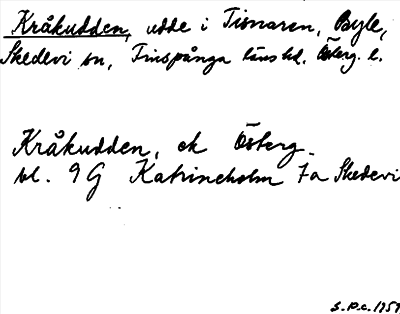 Kråkudden, udde i Tisnaren, Byle,
Skedevi sn, Finspånga läns hd. Österg. l.
Kråkudden, ek Österg.
bl. 9G Katrineholm 7a Skedevi
S.P.C. 1959